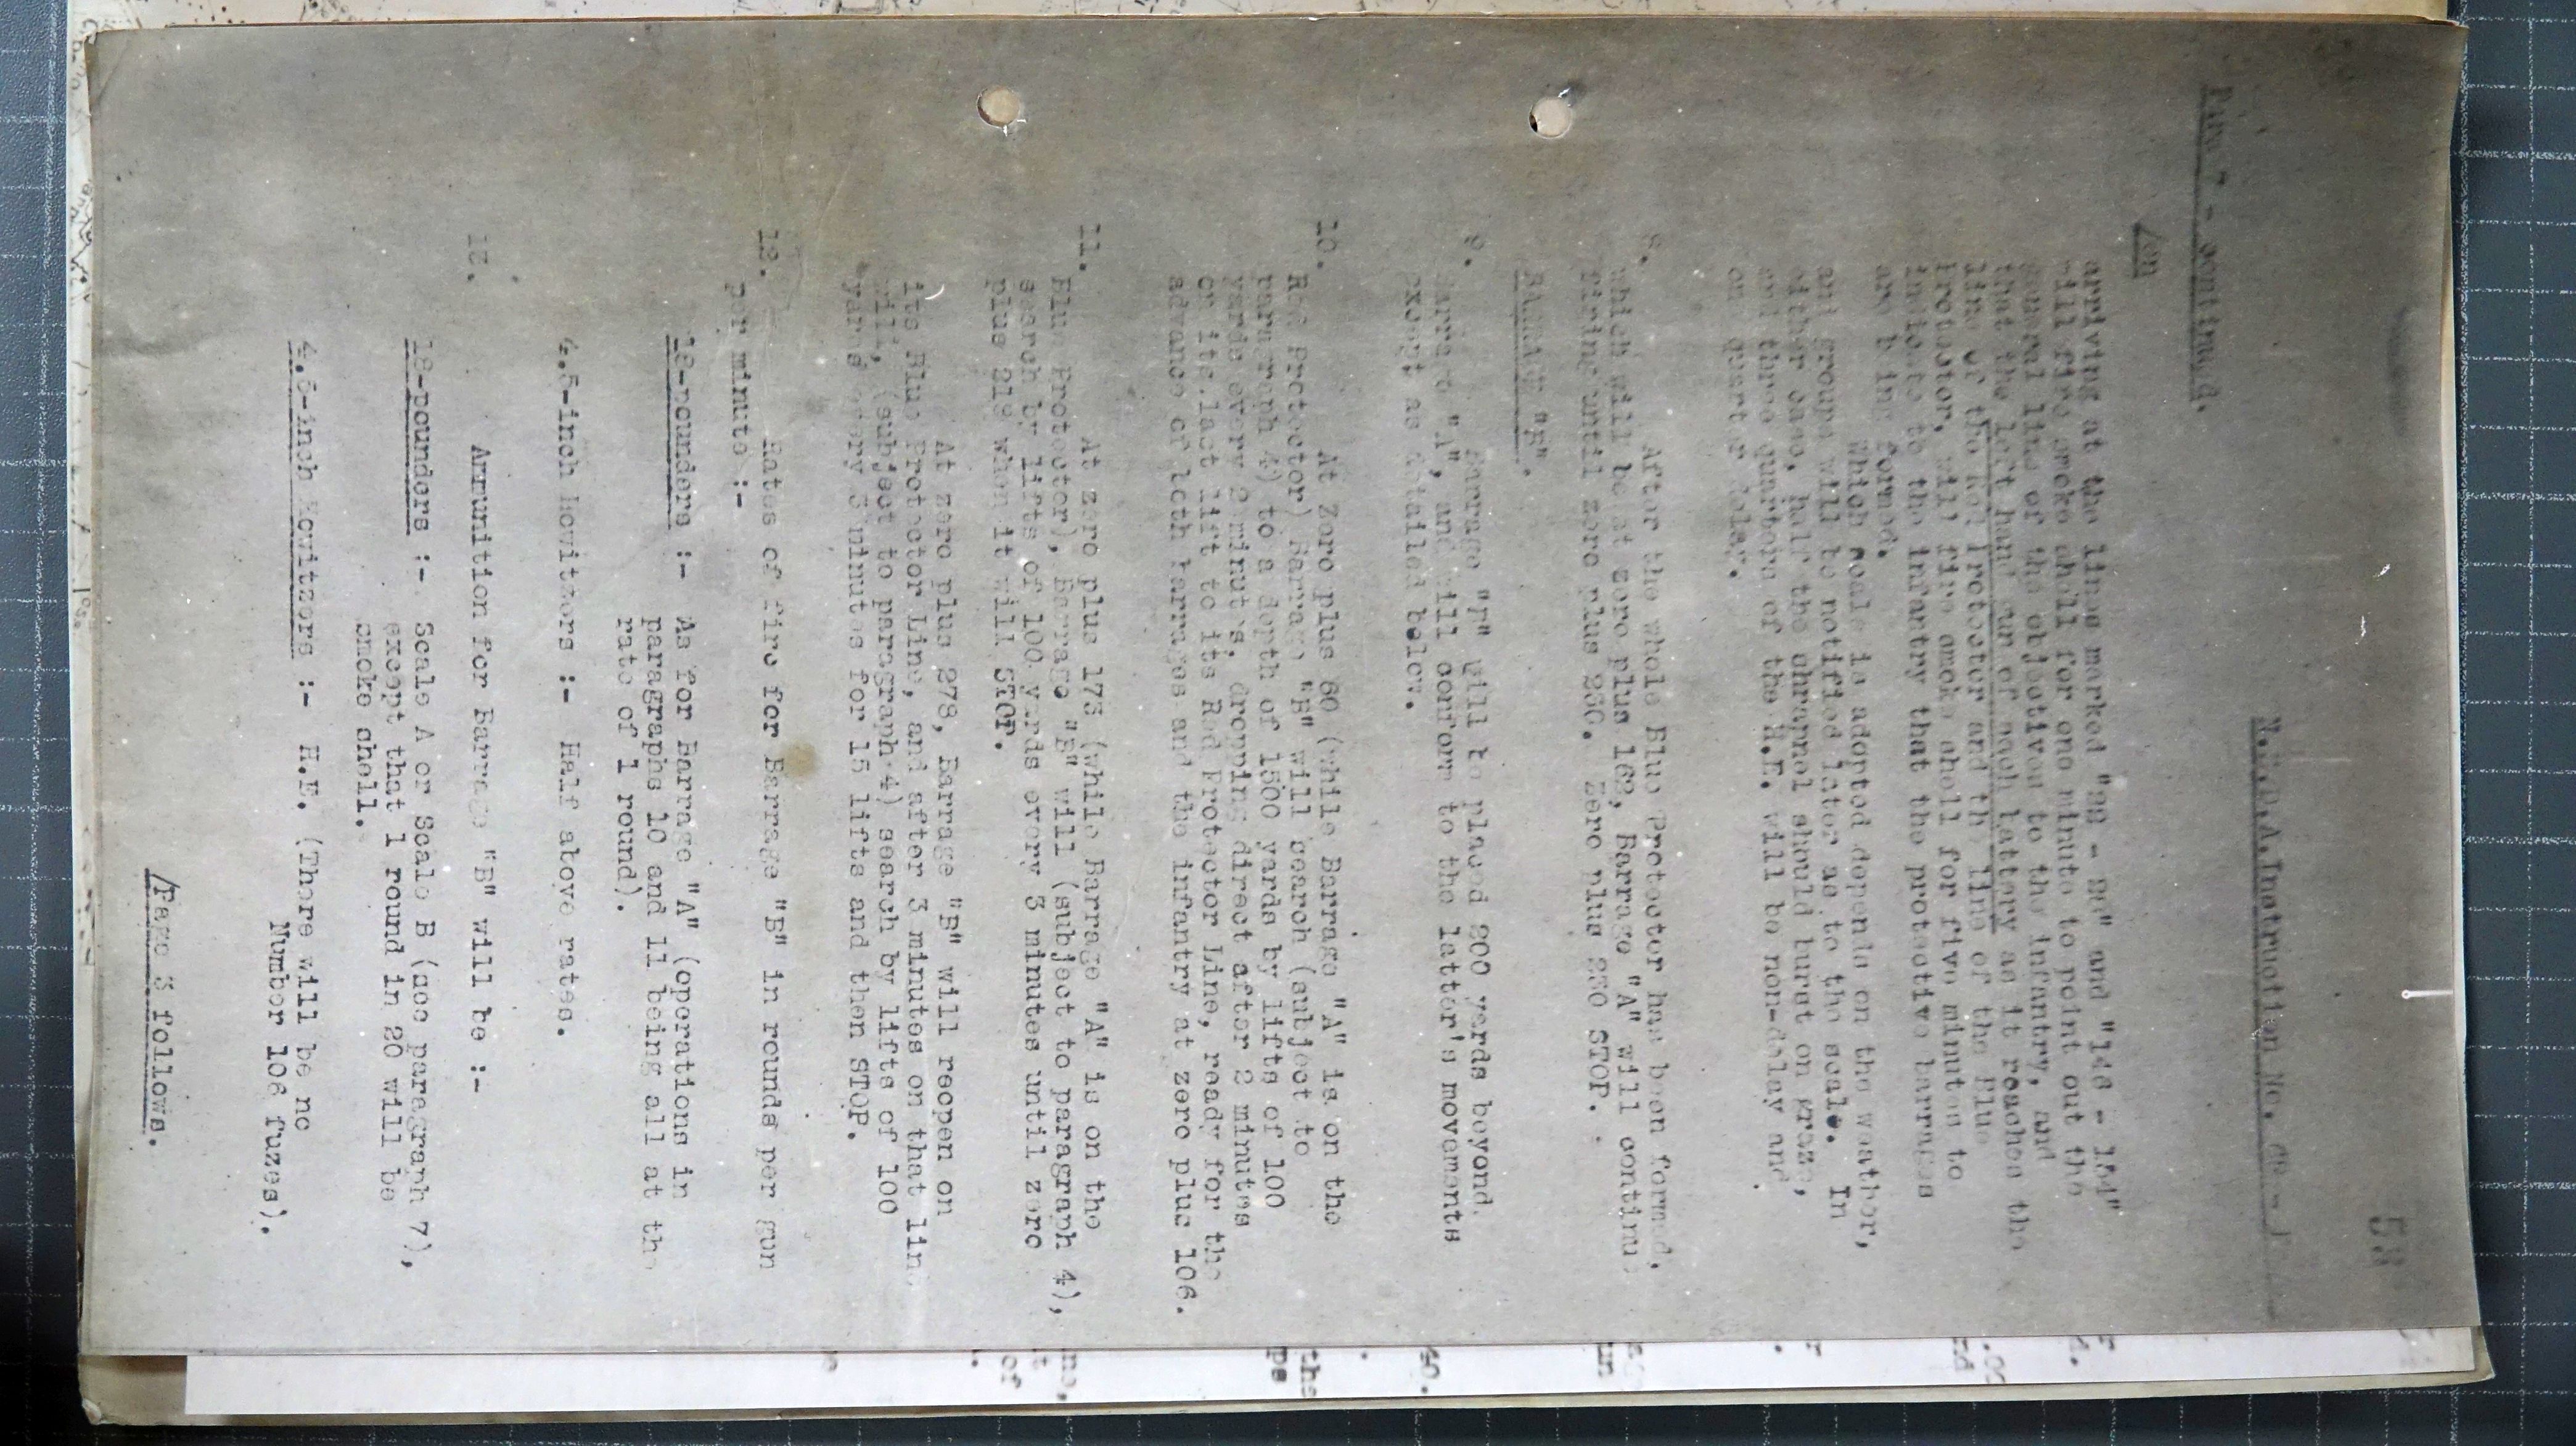 53
N.Z.D.A. Instruction No.
Page 2 - continued.
/on
arriving at the lines marked "92 - 96" and "148 - 154"
will fire smoke shell for one minute to point out the
general line of the objective to the infantry, and
that the left hand gun of each battery as it reaches the
line of the Red Protector and the line of the Blue
Protector, will fire smoke shell for five minutes to
indicate to the infantry that the protective barrages
are being formed.
Which scale is adopted depends on the weather,
and groups will be notified later as to the scale. In
either case, half the shrapnel should burst on graze,
and three quarters of the H.E. will be non-delay and
one quarter delay.
8. After the whole Blue Protector has been formed,
which will be at zero plus 162, Barrage "A" will continue
firing until zero plus 230. Zero plus 230 STOP.
BARRAGE "B".
9. Barrage "B" will be placed 200 yards beyond
Barrage "A", and will conform to the latter's movements
except as detailed below.
10. At zero plus 60 (while Barrage "A" is on the
Red Protector) Barrage "B" will search (subject to
paragraph 4) to a depth of 1500 yards by lifts of 100
yards every 2 minutes, dropping direct after 2 minutes
on its last lift to its Red Protector Line, ready for the
advance of both barrages and the infantry at zero plus 106.
11. At zero plus 173 (while Barrage "A" is on the
Blue Protector), Barrage "B" will (subject to paragraph 4),
search by lifts of 100 yards every 3 minutes until zero
plus 218 when it will STOP.
At zero plus 278, Barrage "B" will reopen on
its Blue Protector Line, and after 3 minutes on that line
will, (subject to paragraph 4) search by lifts of 100
yards every 3 minutes for 15 lifts and then STOP.
12. Rates of fire for Barrage "B" in rounds per gun
per minute :-
18-pounders :- As for Barrage "A" (operations in
paragraphs 10 and 11 being all at the
rate of 1 round).
4.5-inch Howitzers :- Half above rates.
13. Ammunition for Barrage "B" will be :-
18-pounders :- Scale A or Scale B (see paragraph 7),
except that 1 round in 20 will be
smoke shell.
4.5-inch Howitzers :- H.E. (There will be no
Number 106 fuzes).
/Page 3 follows.